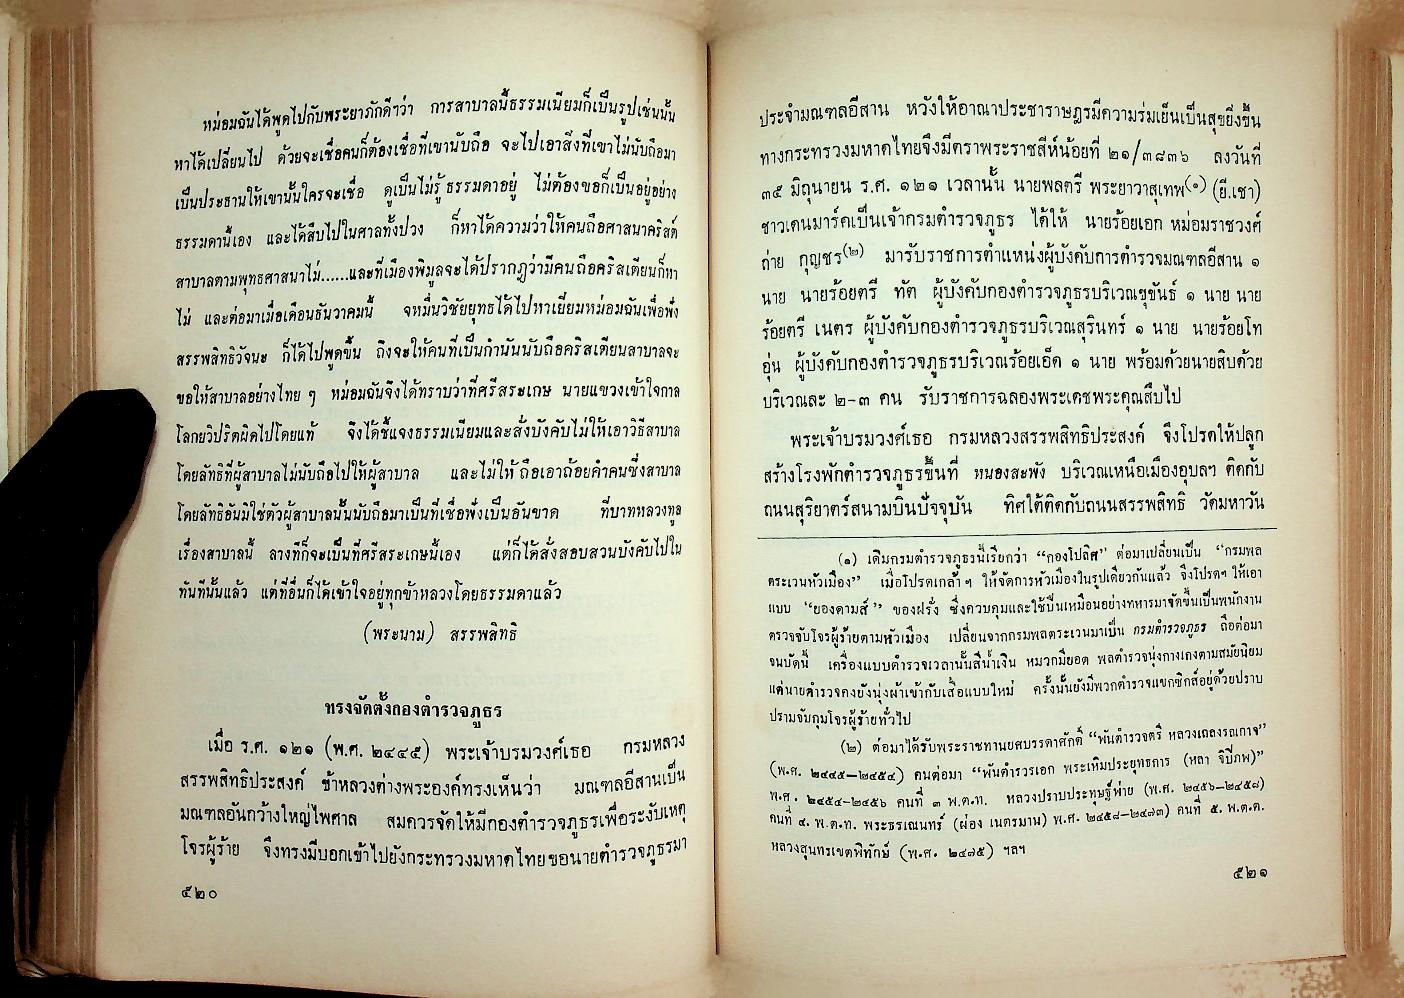 หม่อมฉันได้พูดไปกับพระยาภักดีฯว่า การสาบาลนี้ธรรมเนียมก็เป็นรูปเช่นนั้น
หาได้เปลี่ยนไป ด้วยจะเชื่อคนก็ต้องเชื่อที่เขานับถือ จะไปเอาสิ่งที่เขาไม่นับถือมา
เป็นประธานให้เขานั้นใครจะเชื่อ ดูเป็นไม่รู้ธรรมดาอยู่ ไม่ต้องขอก็เป็นอยู่อย่าง
ธรรมดานี้เอง และได้สืบไปในศาลทั้งปวง ก็หาได้ความว่าให้คนถือศาสนาคริสต์
สาบาลตามพุทธศาสนาไม่......และที่เมืองพิมูลจะได้ปรากฏว่ามีคนถือคริสเตียนก็หา
ไม่ และต่อมาเมื่อเดือนธันวาคมนี้ จหมื่นวิชัยยุทธได้ไปหาเยี่ยมหม่อมฉันเพื่อฟัง
สรรพสิทธิวัจนะ ก็ได้ไปพูดขึ้น ถึงจะให้คนที่เป็นกำนันนับถือคริสเตียนสาบาลจะ
ขอให้สาบาลอย่างไทย ๆ หม่อมฉันจึงได้ทราบว่าที่ศรีสระเกษ นายแขวงเข้าใจกาล
โลกยวิปริตผิดไปโดยแท้ จึงได้ชี้แจงธรรมเนียมและสั่งบังคับไม่ให้เอาวิธีสาบาล
โดยลัทธิที่ผู้สาบาลไม่นับถือไปให้ผู้สาบาล และไม่ให้ถือเอาถ้อยคำคนซึ่งสาบาล
โดยลัทธิอันมิใช่ตัวผู้สาบาลนั้นนับถือมาเป็นที่เชื่อฟังเป็นอันขาด ที่บาทหลวงทูล
เรื่องสาบาลนี้ ลางทีก็จะเป็นที่ศรีสระเกษนี้เอง แต่ก็ได้สั่งสอบสวนบังคับไปใน
ทันทีนั้นแล้ว แต่ที่อื่นก็ได้เข้าใจอยู่ทุกข้าหลวงโดยธรรมดาแล้ว
(พระนาม) สรรพสิทธิ
ทรงจัดตั้งกองตำรวจภูธร
เมื่อ ร.ศ. ๑๒๑ (พ.ศ. ๒๔๔๕) พระเจ้าบรมวงศ์เธอ กรมหลวง
สรรพสิทธิประสงค์ ข้าหลวงต่างพระองค์ทรงเห็นว่า มณฑลอีสานเป็น
มณฑลอันกว้างใหญ่ไพศาล สมควรจัดให้มีกองตำรวจภูธรเพื่อระงับเหตุ
โจรผู้ร้าย จึงทรงมีบอกเข้าไปยังกระทรวงมหาดไทยขอนายตำรวจภูธรมา
๕๒๐
ประจำมณฑลอีสาน หวังให้อาณาประชาราษฎรมีความร่มเย็นเป็นสุขยิ่งขึ้น
ทางกระทรวงมหาดไทยจึงมีตราพระราชสีห์น้อยที่ ๒๑/๓๘๓๖ ลงวันที่
๓๕ มิถุนายน ร.ศ. ๑๒๑ เวลานั้น นายพลตรี พระยาวาสุเทพ(๑) (ยี.เชา)
ชาวเดนมาร์คเป็นเจ้ากรมตำรวจภูธร ได้ให้ นายร้อยเอก หม่อมราชวงศ์
ถ่าย กุญชร(๒) มารับราชการตำแหน่งผู้บังคับการตำรวจมณฑลอีสาน ๑
นาย นายร้อยตรี ทัต ผู้บังคับกองตำรวจภูธรบริเวณขุขันธ์ ๑ นาย นาย
ร้อยตรี เนตร ผู้บังคับกองตำรวจภูธรบริเวณสุรินทร์ ๑ นาย นายร้อยโท
อุ่น ผู้บังคับกองตำรวจภูธรบริเวณร้อยเอ็ด ๑ นาย พร้อมด้วยนายสิบด้วย
บริเวณละ ๒-๓ คน รับราชการฉลองพระเดชพระคุณสืบไป
พระเจ้าบรมวงศ์เธอ กรมหลวงสรรพสิทธิประสงค์ จึงโปรดให้ปลูก
สร้างโรงพักตำรวจภูธรขึ้นที่ หนองสะพัง บริเวณเหนือเมืองอุบลฯ ติดกับ
ถนนสุริยาตร์สนามบินปัจจุบัน ทิศใต้ติดกับถนนสรรพสิทธิ วัดมหาวัน
(๑) เดิมกรมตำรวจภูธรนี้เรียกว่า “กองโปลิศ” ต่อมาเปลี่ยนเป็น “กรมพล
ตระเวนหัวเมือง” เมื่อโปรดเกล้าฯ ให้จัดการหัวเมืองในรูปเดียวกันแล้ว จึงโปรดฯ ให้เอา
แบบ “ยองดามส์” ของฝรั่ง ซึ่งควบคุมและใช้ปืนเหมือนอย่างทหารมาจัดขึ้นเป็นพนักงาน
ตรวจจับโจรผู้ร้ายตามหัวเมือง เปลี่ยนจากกรมพลตระเวนมาเป็น กรมตำรวจภูธร ถือต่อมา
จนบัดนี้ เครื่องแบบตำรวจเวลานั้นสีน้ำเงิน หมวกมียอด พลตำรวจนุ่งกางเกงตามสมัยนิยม
แต่นายตำรวจคงยังนุ่งผ้าเข้ากับเสื้อแบบใหม่ ครั้งนั้นยังมีพวกตำรวจแขกซิกส์อยู่ด้วยปราบ
ปรามจับกุมโจรผู้ร้ายทั่วไป
(๒) ต่อมาได้รับพระราชทานยศบรรดาศักดิ์ “พันตำรวจตรี หลวงเถลงรณกาจ”
(พ.ศ. ๒๔๔๕–๒๔๕๔) คนต่อมา “พันตำรวรเอก พระเหิมประยุทธการ (หลา จิปีภพ)”
พ.ศ. ๒๔๕๔–๒๔๕๖ คนที่ ๓ พ.ต.ท. หลวงปราบประทุษฐ์พ่าย (พ.ศ. ๒๔๕๖–๒๔๕๘)
คนที่ ๔. พ.ต.ท. พระธรเณนทร์ (ผ่อง เนตรมาน) พ.ศ. ๒๔๕๘–๒๔๗๓) คนที่ ๕. พ.ต.ต.
หลวงสุนทรเขตพิทักษ์ (พ.ศ. ๒๔๗๕) ฯลฯ
๕๒๑